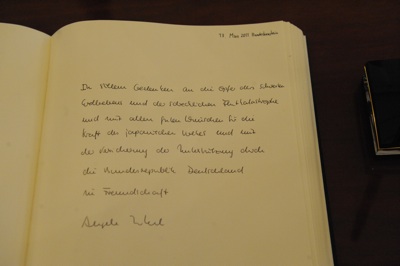 In stillem Gedenken an die Opfer des schweren
Erdbebens und der schrecklichen Flutkatastrophe
und mit allen guten Wünschen für die
Kraft des japanischen Volkes und mit
der Versicherung der Unterstützung durch
die Bundesrepublik Deutschland
in Freundschaft
Angela Merkel